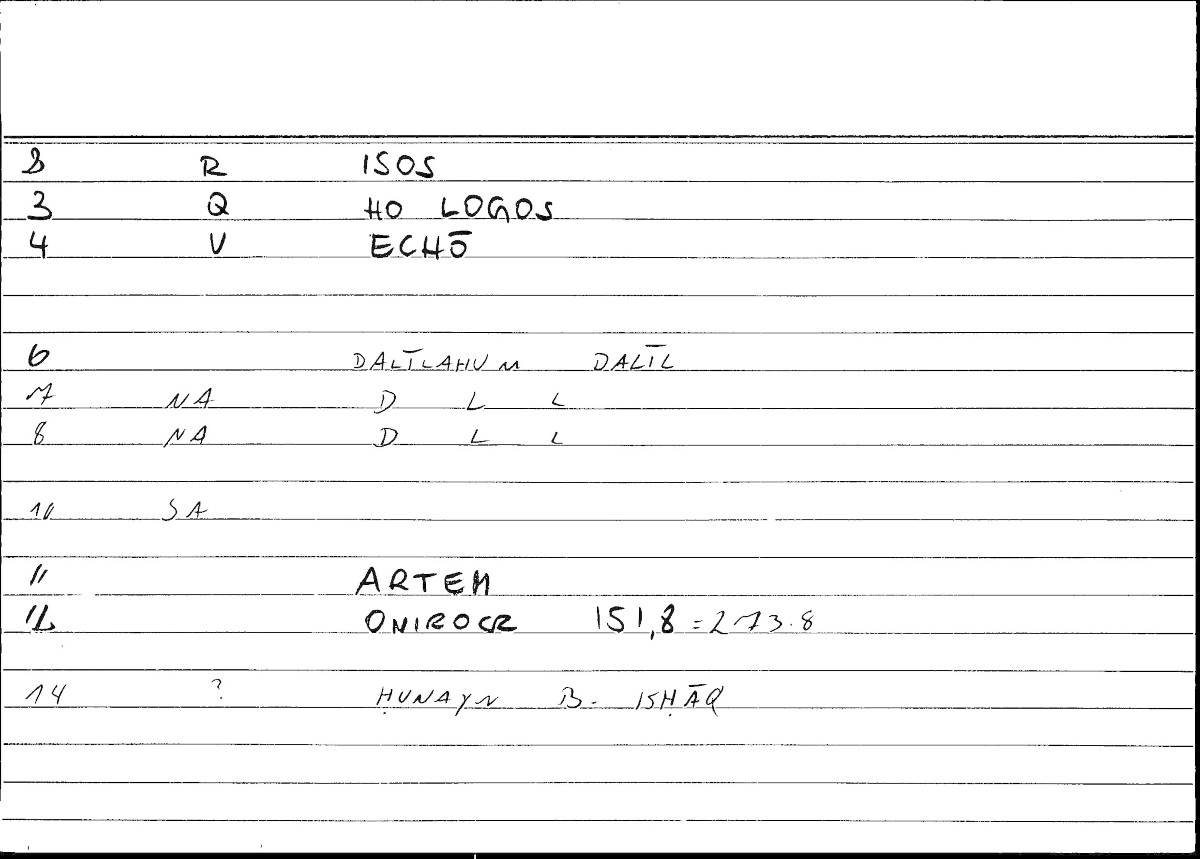 2 R ISOS
3 Q HO LOGOS
4 V ECHŌ
6 DALĪLAHUM DALĪL
7 NA D L L
8 NA D L L
10 SA
11 ARTEM
12 ONIROCR 151,8 = 273.8
14 ? ḤUNAYN B. ISḤĀQ